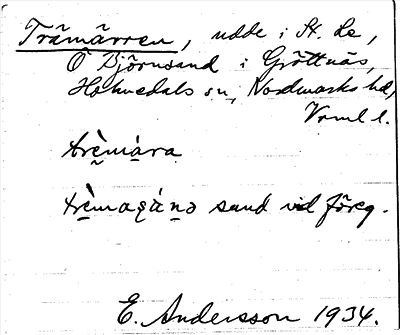 Trämärren, udde i St. Le,
Ö Björnsand i Gröttnäs,
Holmedals sn, Nordmarks hd,
Vrml l.
trè̤mà̤ra
sand vid föreg.
E. Andersson 1934.